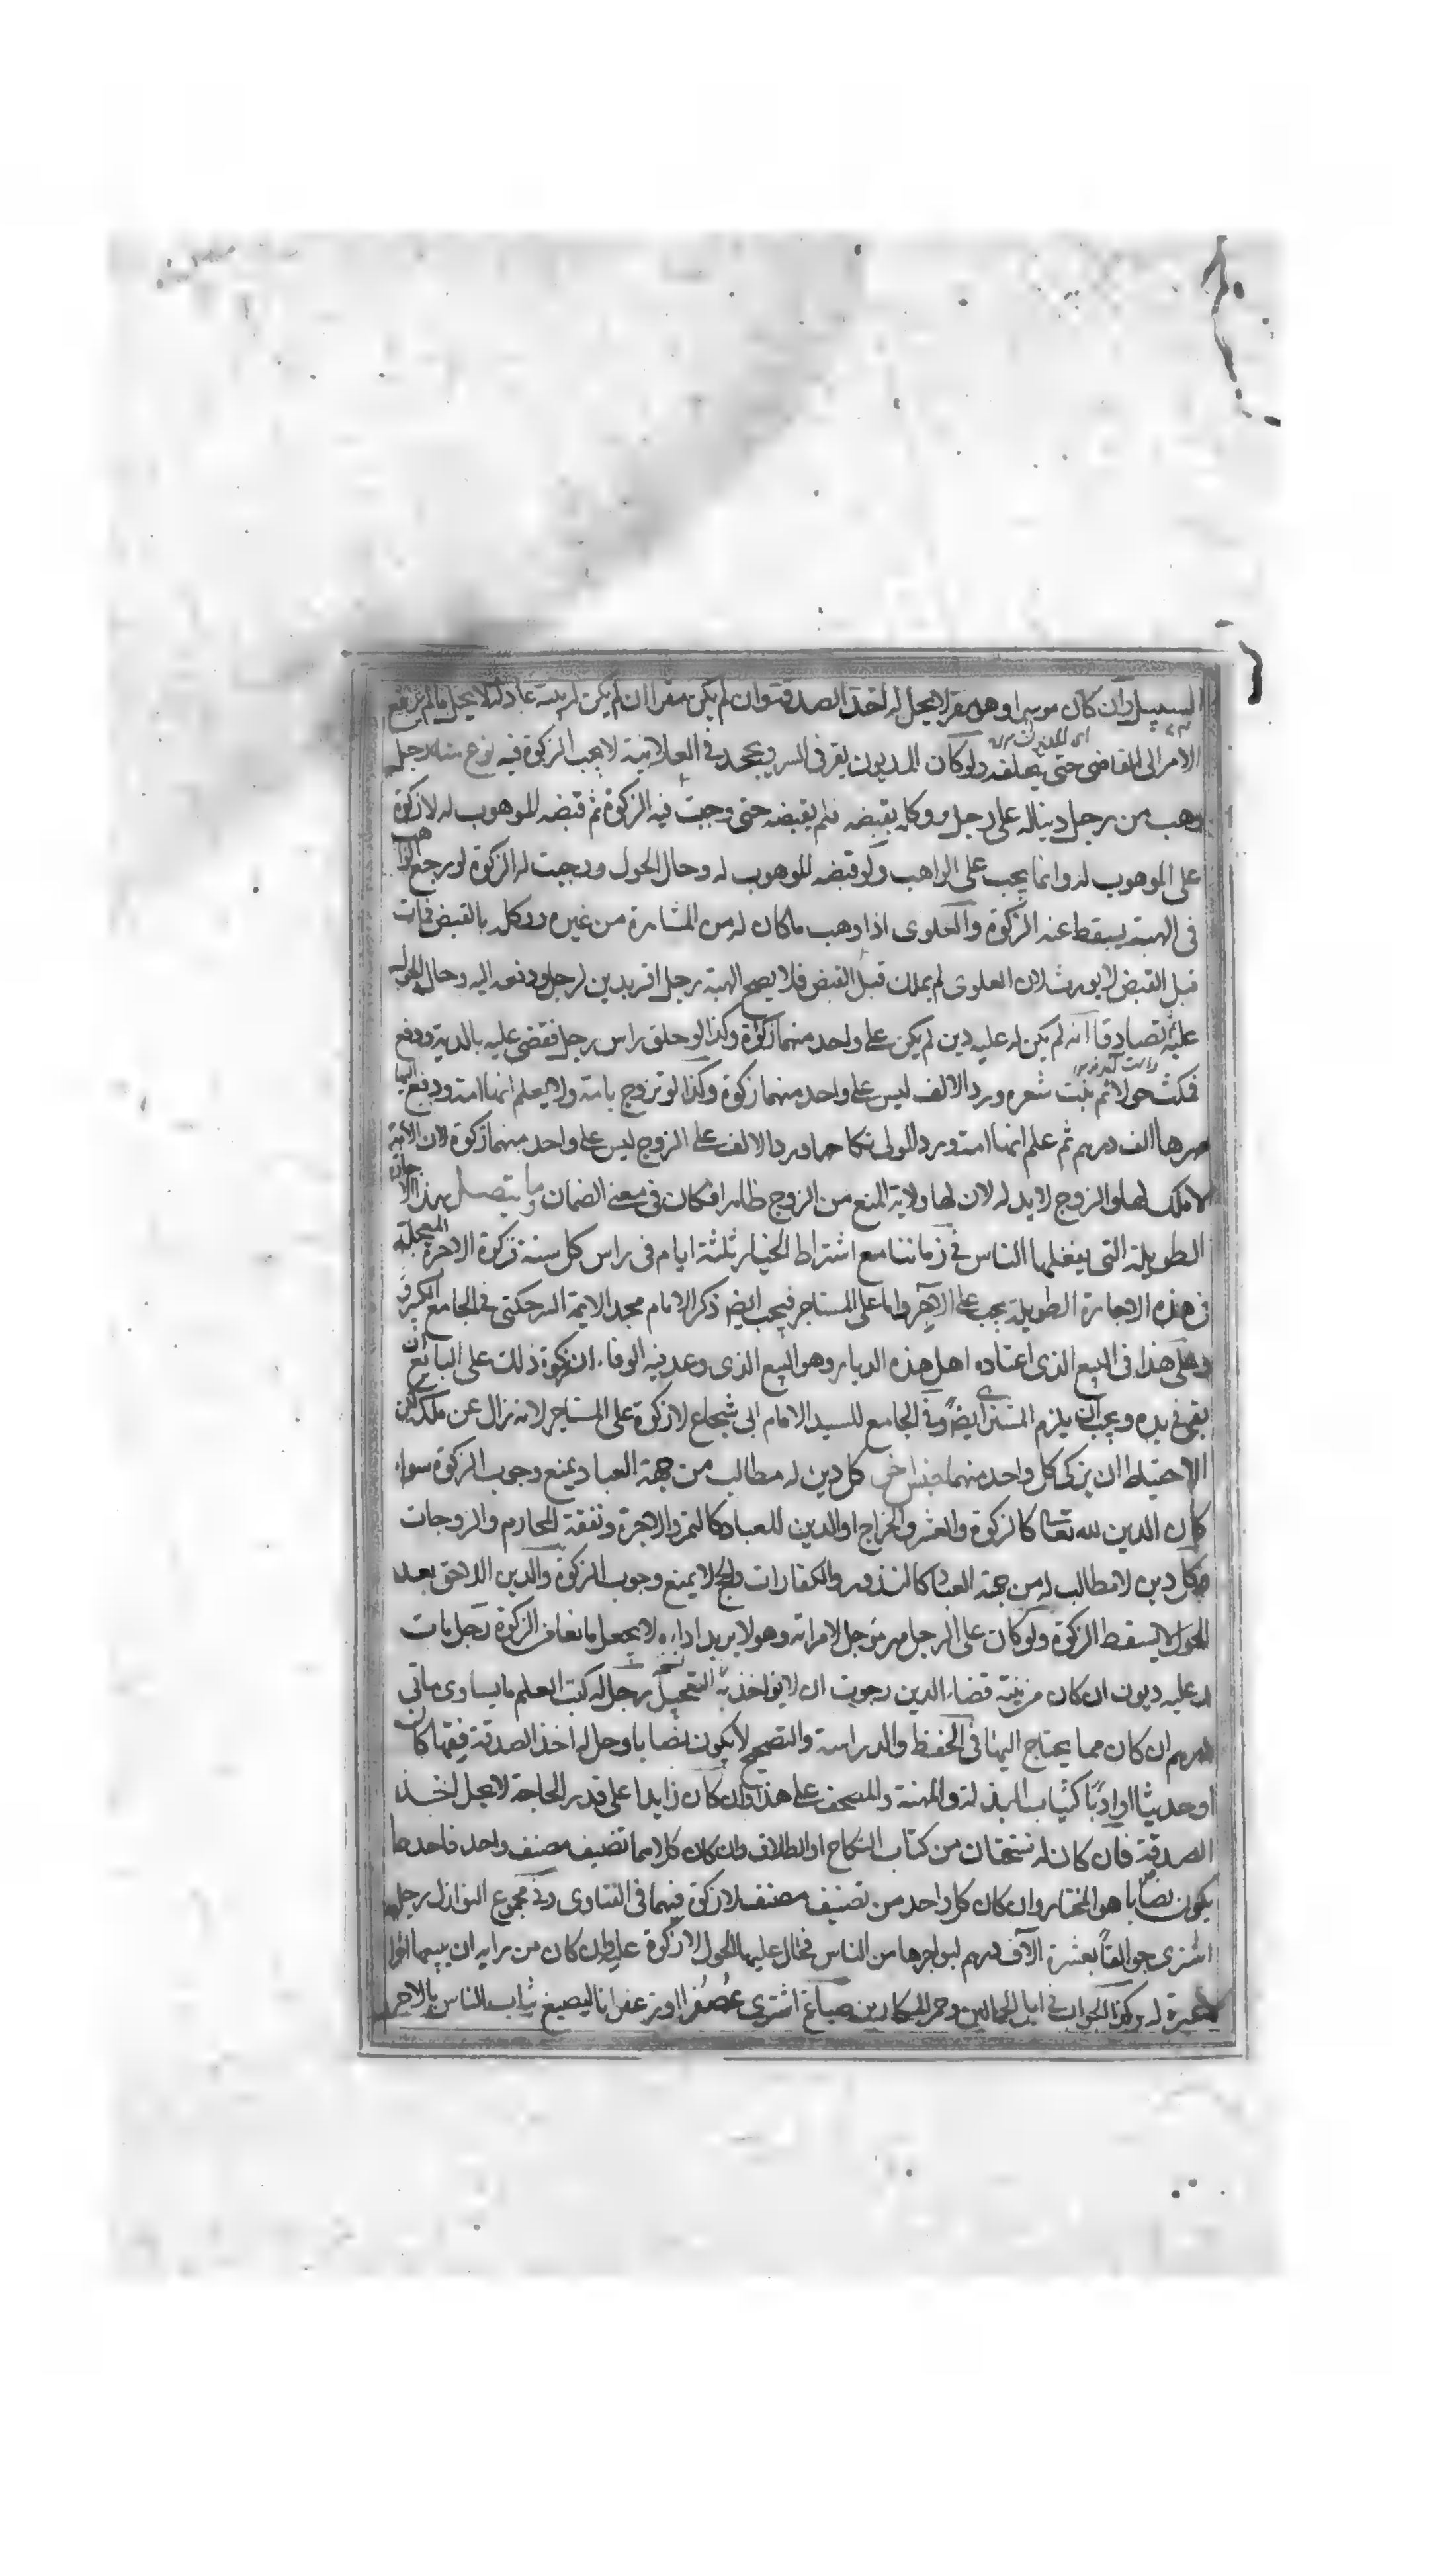 السبيل وان كان موسرا وهو مقر لا يحل له اخذ الصدقة وان لم يكن مقرا ان لم يكن له بينة عادلة لا يحل ما لم يرفع
الامر الى القاضى حتى يحلفه ولو كان المديون يقر فى السر ويجحد فى العلانية لا يجب الزكوة فيه نوع منه رجل
وهب من رجل دينا له على رجل ووكله بقبضه فلم يقبضه حتى وجبت فيه الزكوة ثم قبضه الموهوب له لا زكوة
على الموهوب له وانما يجب على الواهب ولو قبضه الموهوب له وحال الحول ووجبت له الزكوة لو رجع الواهب
فى الهبة يسقط عنه الزكوة والعلوى اذا وهب ما كان له من المشاهرة من غيره ووكله بالقبض فمات
قبل القبض لا يورث لان العلوى لم يملك قبل القبض فلا يصح الهبة رجل اقر بدين لرجل ودفعه اليه وحال الحول
عليه ثم تصادقا انه لم يكن له عليه دين لم يكن على واحد منهما زكوة وكذا لو حلق راس رجل فقضى عليه بالدية ودفع
فمكث حولا ثم نبت شعره ورد الالف ليس على واحد منهما زكوة وكذا لو تزوج بامة ولا يعلم انها امة ودفع اليها
مهرها الف درهم ثم علم انها امة ورد المولى نكاحها ورد الالف على الزوج ليس على واحد منهما زكوة لان الامة
لا ملك لها والزوج لا يد له لان لها ولاية المنع من الزوج ظاهرا فكان فى معنى الضمان وما يتصل بهذا الاجارة
الطويلة التى يفعلها الناس فى زماننا مع اشتراط الخيار ثلثة ايام فى راس كل سنة زكوة الاجرة المعجلة
فى هذه الاجارة الطويلة يجب على الآجر واما على المستاجر فيجب ايضا ذكر الامام مجد الايمة السرحكتى فى الجامع الكبير
وعلى هذا فى البيع الذى اعتاده اهل هذه الديار وهو البيع الذى وعد فيه الوفاء ان زكوة ذلك على البائع ان
بقى فى يده ويجب ان يلزم المشترى ايضا وفى الجامع للسيد الامام ابى شجاع لا زكوة على المستاجر لانه زال عن ملكه لكن
الاحتياط ان يزكى كل واحد منهما جنس اخر كل دين له مطالب من جهة العباد يمنع وجوب الزكوة سواء
كان الدين لله تعالى كالزكوة والعشر والخراج او الدين للعباد كالثمن والاجرة ونفقة المحارم والزوجات
وكل دين لا مطالب له من جهة العباد كالنذور والكفارات والحج لا يمنع وجوب الزكوة والدين اللاحق بعد
الحول لا يسقط الزكوة ولو كان على الرجل مهر مؤجل لامراته وهو لا يريد اداءه لا يجعل مانعا من الزكوة رجل مات
وعليه ديون ان كان من نيته قضاء الدين رجوت ان لا يؤاخذ به التعجيل رجل له كتب العلم ما يساوى مأتى
درهم ان كان مما يحتاج اليها فى الحفظ والدراسة والتصحيح لا يكون نصابا وحل له اخذ الصدقة فقها كان
او حديثا او ادبا كثياب البذلة والمهنة والمصحف على هذا وان كان زايدا على قدر الحاجة لا يحل اخذ
الصدقة فان كان له نسختان من كتاب النكاح او الطلاق وان كان كلاهما تصنيف مصنف واحد فاحدهما
يكون نصابا هو المختار وان كان كل واحد من تصنيف مصنف لا زكوة فيهما فى الفتاوى وفى مجموع النوازل رجل
اشترى جوالقا بعشرة آلاف درهم ليواجرها من الناس فحال عليها الحول لا زكوة عليه وان كان من رايه ان يبيعها اخرا
لا عبرة له وكذا الجواب فى ابل الحمالين وحمر المكارين صباغ اشترى عصفرا او زعفرانا ليصبغ ثياب الناس بالاجر